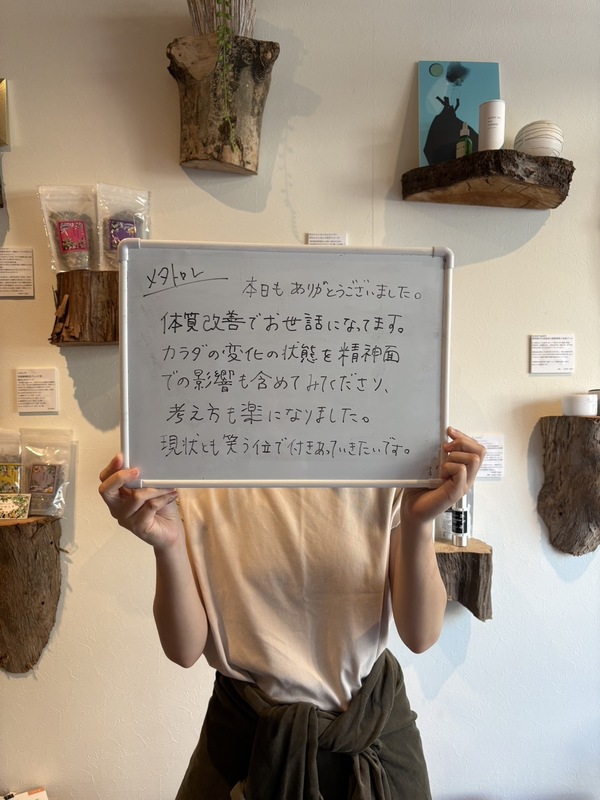 メタトロン
本日もありがとうございました。
体質改善でお世話になってます。
カラダの変化の状態を精神面
での影響も含めてみてくださり、
考え方も楽になりました。
現状とも笑う位で付きあっていきたいです。